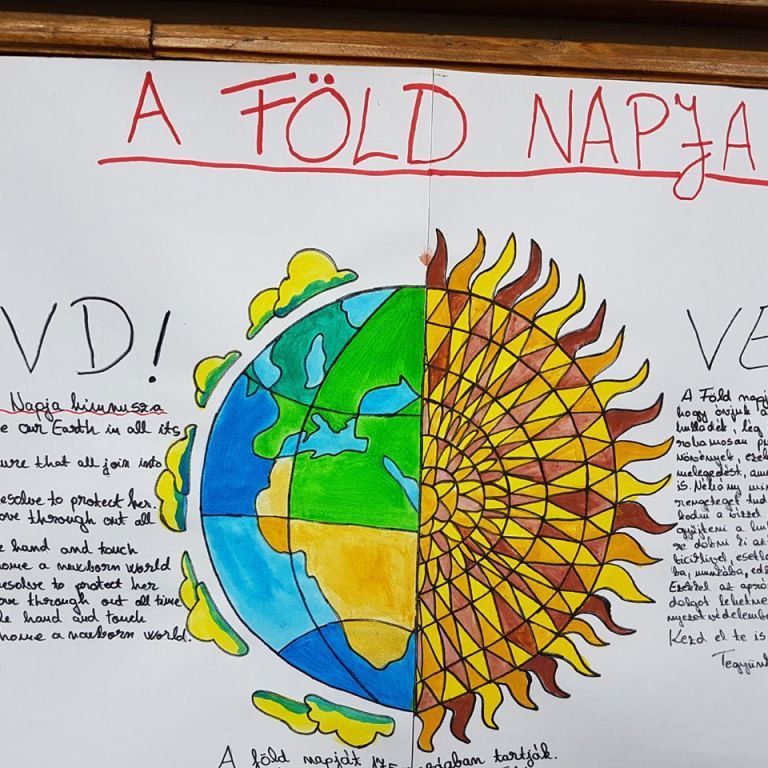 A FÖLD NAPJA
VD!
VE
Napja himnusza
e our Earth in all its
ure that all join into
esolve to protect her.
ove through out all
e hand and touch
ome a newborn world
esolve to protect her
ove through out all time
le hand and touch
home a newborn world.
A Föld napj
hogy óvjuk a
hulladék, lég
robamosan pu
növények, ezek
melegedést, am
is. Néhány min
rengeteget tud
kodni a vízzel
gyűjteni a hul
se dobni ki az
biciklivel, esetle
ba, munkába, ed
Ezekkel az apró
dolgot tehetne
nyezetvédelemb
Kezd el te is
Tegyünk
A föld napját 175 országban tartják.